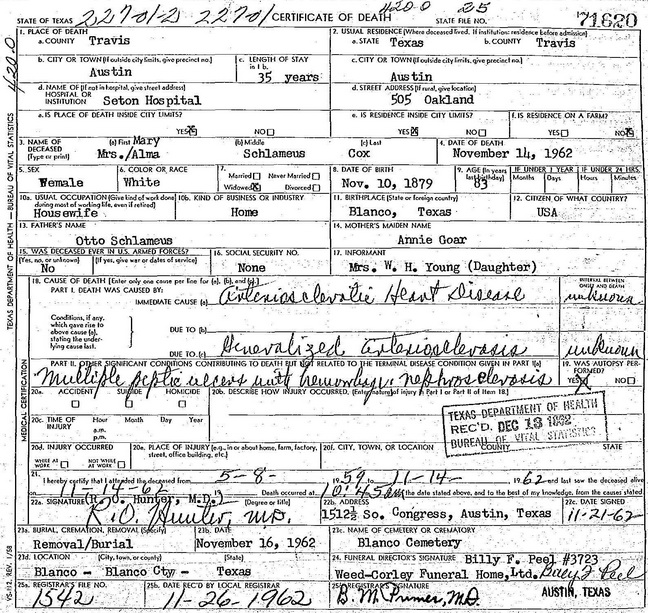 STATE OF TEXAS 22701-2 2270/ CERTIFICATE OF DEATH 420.0 STATE FILE NO. 25 71620
420.0
1. PLACE OF DEATH
a. COUNTY Travis
2. USUAL RESIDENCE (Where deceased lived. If institution: residence before admission)
a. STATE Texas b. COUNTY Travis
b. CITY OR TOWN (If outside city limits, give precinct no.)
Austin
c. LENGTH OF STAY
in 1 b.
35 years
c. CITY OR TOWN (If outside city limits, give precinct no.)
Austin
d. NAME OF (If not in hospital, give street address)
HOSPITAL OR
INSTITUTION Seton Hospital
d. STREET ADDRESS (If rural, give location)
505 Oakland
e. IS PLACE OF DEATH INSIDE CITY LIMITS?
YES NO
e. IS RESIDENCE INSIDE CITY LIMITS?
YES NO
f. IS RESIDENCE ON A FARM?
YES NO
3. NAME OF
DECEASED
(Type or print)
(a) First Mary
Mrs./Alma
(b) Middle
Schlameus
(c) Last
Cox
4. DATE OF DEATH
November 14, 1962
5. SEX
Wemale
6. COLOR OR RACE
White
7.
Married Never Married
Widowed Divorced
8. DATE OF BIRTH
Nov. 10, 1879
9. AGE (In years
last birthday)
83
IF UNDER 1 YEAR
Months Days
IF UNDER 24 HRS.
Hours Minutes
10a. USUAL OCCUPATION (Give kind of work done
during most of working life, even if retired)
Housewife
10b. KIND OF BUSINESS OR INDUSTRY
Home
11. BIRTHPLACE (State or foreign country)
Blanco, Texas
12. CITIZEN OF WHAT COUNTRY?
USA
13. FATHER'S NAME
Otto Schlameus
14. MOTHER'S MAIDEN NAME
Annie Goar
15. WAS DECEASED EVER IN U.S. ARMED FORCES?
(Yes, no, or unknown) (If yes, give war or dates of service)
No
16. SOCIAL SECURITY NO.
None
17. INFORMANT
Mrs. W. H. Young (Daughter)
18. CAUSE OF DEATH [Enter only one cause per line for (a), (b), and (c).]
PART I. DEATH WAS CAUSED BY:
IMMEDIATE CAUSE (a) Arteriosclerotic Heart Disease
INTERVAL BETWEEN
ONSET AND DEATH
unknown
Conditions, if any,
which gave rise to
above cause (a),
stating the under-
lying cause last.
DUE TO (b)
DUE TO (c) Generalized arteriosclerosis unknown
PART II. OTHER SIGNIFICANT CONDITIONS CONTRIBUTING TO DEATH BUT NOT RELATED TO THE TERMINAL DISEASE CONDITION GIVEN IN PART I(a)
Multiple peptic ulcers with hemorrhage, nephrosclerosis
19. WAS AUTOPSY PER-
FORMED?
YES NO
20a. ACCIDENT SUICIDE HOMICIDE
20b. DESCRIBE HOW INJURY OCCURRED. (Enter nature of injury in Part I or Part II of Item 18.)
20c. TIME OF
INJURY
Hour Month Day Year
a.m.
p.m.
TEXAS DEPARTMENT OF HEALTH
REC'D. DEC 13 1962
BUREAU OF VITAL STATISTICS
20d. INJURY OCCURRED
WHILE AT
WORK
NOT WHILE
AT WORK
20e. PLACE OF INJURY (e.g., in or about home, farm, factory,
street, office building, etc.)
20f. CITY, TOWN, OR LOCATION COUNTY STATE
21. I hereby certify that I attended the deceased from 5-8- 1959 to 11-14- 1962 and last saw the deceased alive
on 11-14-62 Death occurred at 10:45 am the date stated above, and to the best of my knowledge, from the causes stated
22a. SIGNATURE (R. O. Hunter, M.D.) (Degree or title)
R. O. Hunter, M.D.
22b. ADDRESS
1512½ So. Congress, Austin, Texas
22c. DATE SIGNED
11-21-62
23a. BURIAL, CREMATION, REMOVAL (Specify)
Removal/Burial
23b. DATE
November 16, 1962
23c. NAME OF CEMETERY OR CREMATORY
Blanco Cemetery
23d. LOCATION (City, town, or county) (State)
Blanco - Blanco Cty - Texas
24. FUNERAL DIRECTOR'S SIGNATURE Billy F. Peel #3723
Weed-Corley Funeral Home, Ltd. Billy F Peel
25a. REGISTRAR'S FILE NO.
1542
25b. DATE REC'D BY LOCAL REGISTRAR
11-26-1962
B. M. Primer, M.D.
AUSTIN, TEXAS
TEXAS DEPARTMENT OF HEALTH — BUREAU OF VITAL STATISTICS
MEDICAL CERTIFICATION
VS-112, REV. 1/58